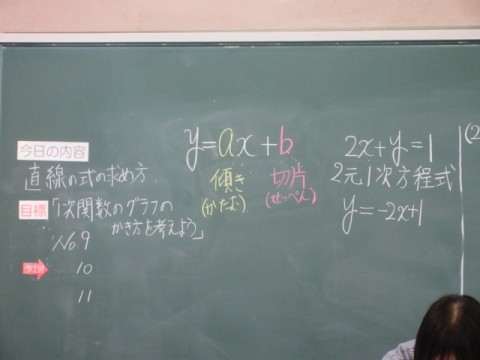 今日の内容
直線の式の求め方
目標 「1次関数のグラフの
かき方を考えよう」
No.9
10
11
y=ax+b
傾き 切片
(かたむき) (せっぺん)
2x+y=1
2元1次方程式
y=-2x+1
(2